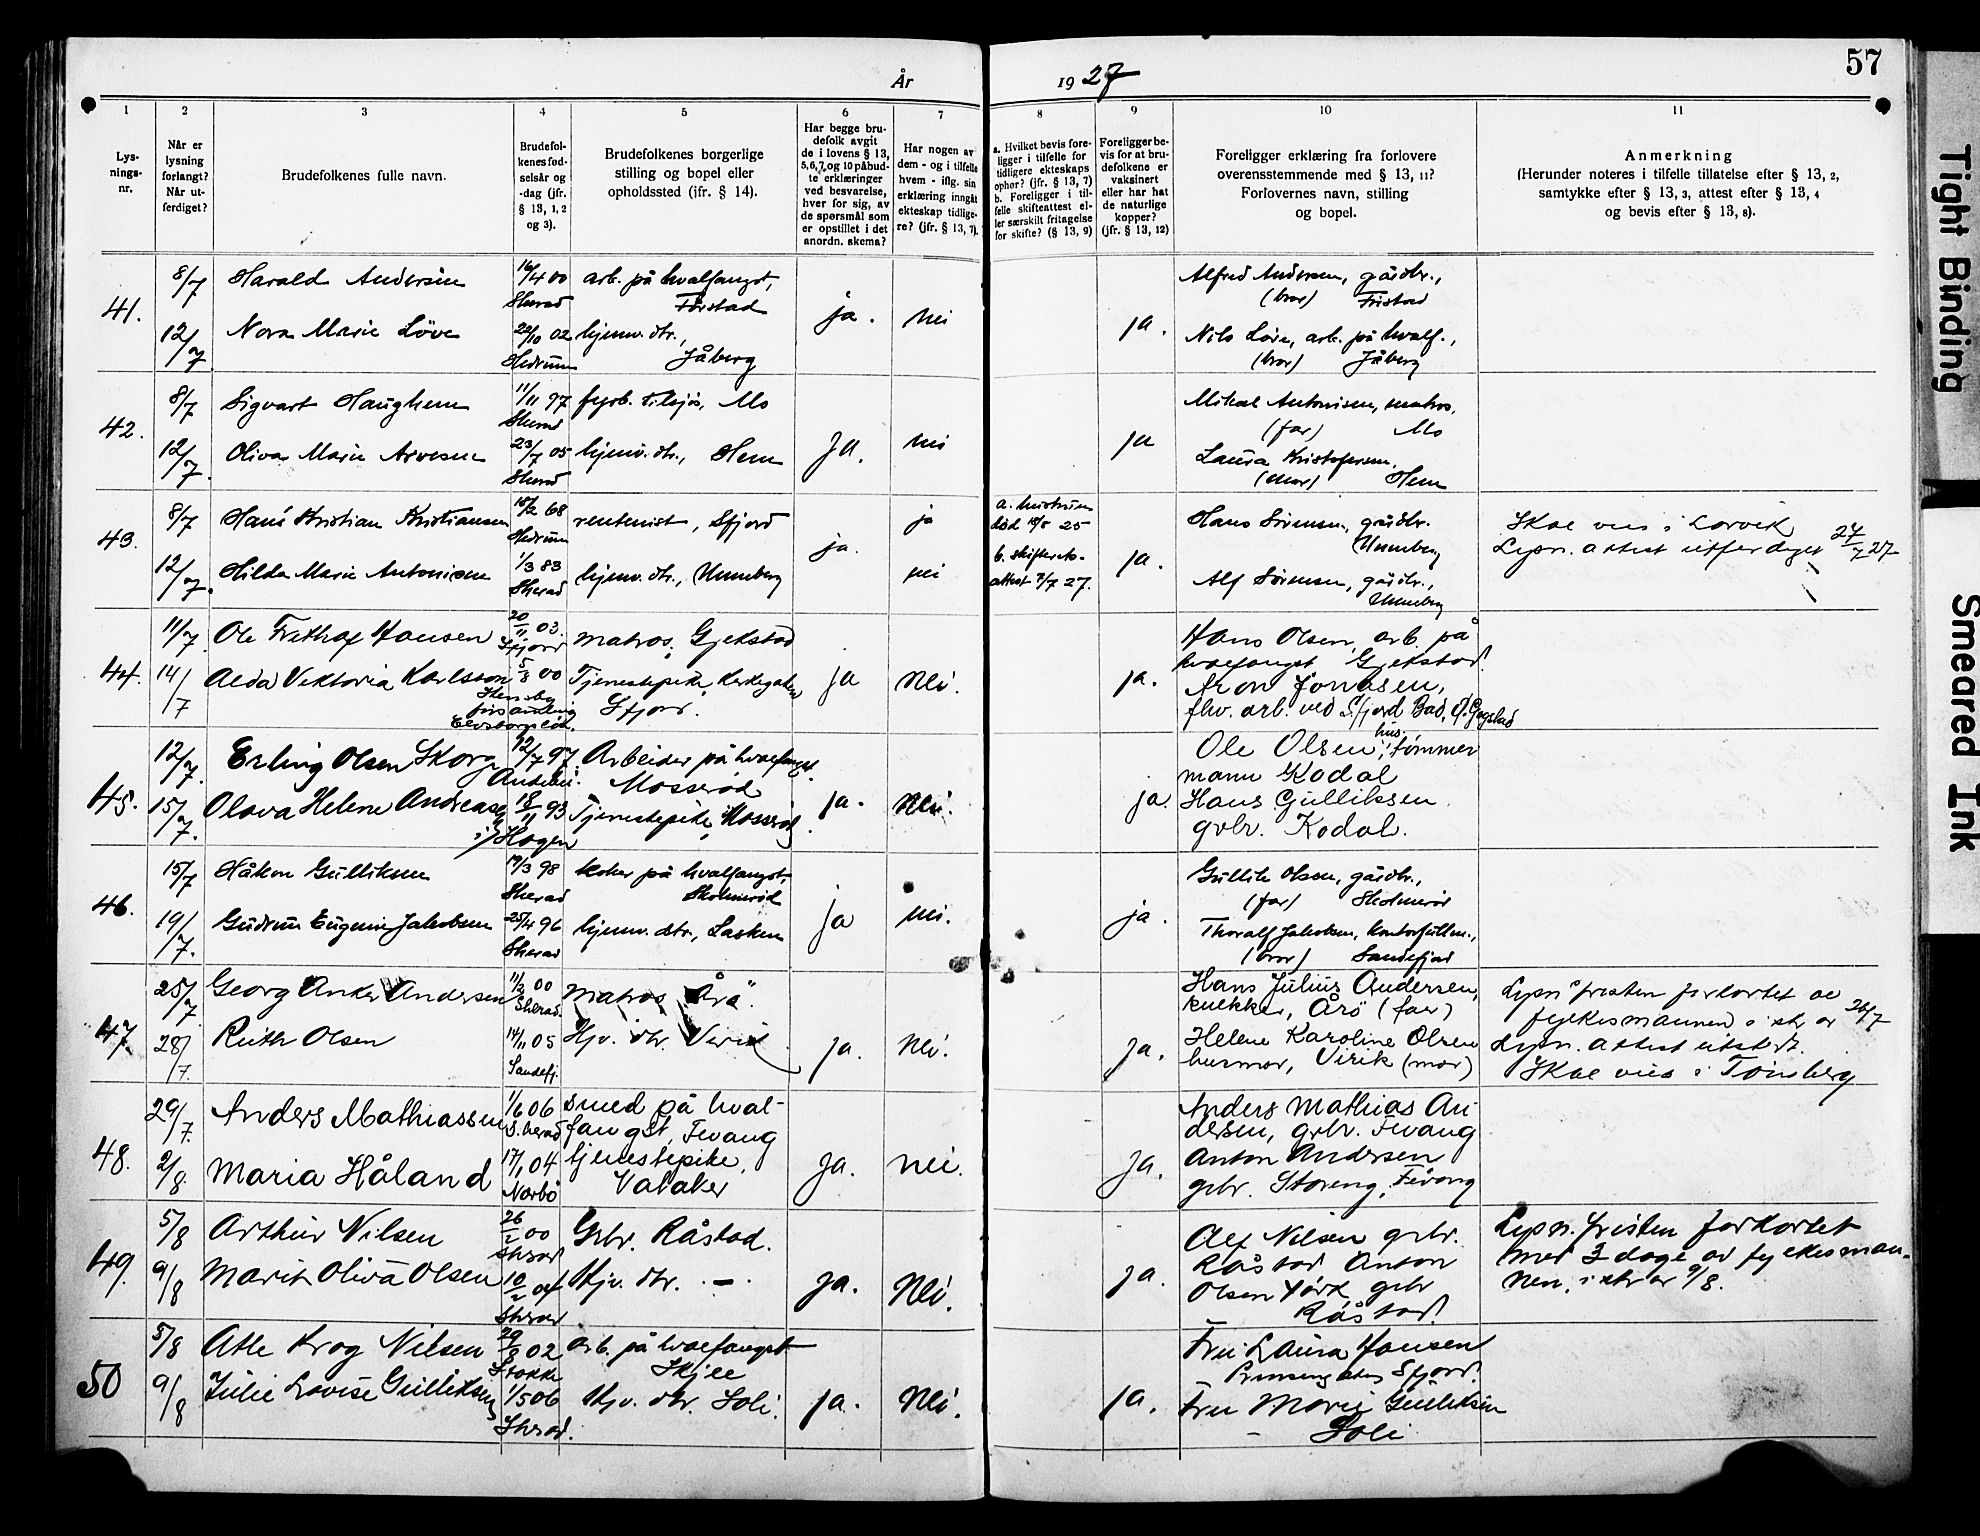 57
År 1927
1 2 3 4 5 6 7 8 9 10 11
Lys-
nings-
nr.
Når er
lysning
forlangt?
Når ut-
ferdiget?
Brudefolkenes fulle navn.
Brudefol-
kenes fød-
selsår og
-dag (jfr.
§ 13, 1, 2
og 3).
Brudefolkenes borgerlige
stilling og bopel eller
opholdssted (ifr. § 14).
Har begge bru-
defolk avgit
de i lovens § 13,
5,6,7,og 10 påbud-
te erklæringer
ved besvarelse,
hver for sig, av
de spørsmål som
er opstillet i det
anordn. skema?
Har nogen av
dem - og i tilfelle
hvem - iflg. sin
erklæring inngått
ekteskap tidlige-
re? (jfr. § 13, 7).
a. Hvilket bevis fore-
ligger i tilfelle for
tidligere ekteskaps
ophør? (jfr. § 13, 7)
b. Foreligger i til-
felle skifteattest el-
ler særskilt fritagelse
for skifte? (§ 13, 9)
Foreligger be-
vis for at bru-
defolkene er
vaksinert
eller har hat
de naturlige
kopper?
(jfr. § 13, 12)
Foreligger erklæring fra forlovere
overensstemmende med § 13, 11?
Forlovernes navn, stilling
og bopel.
Anmerkning
(Herunder noteres i tilfelle tillatelse efter § 13, 2,
samtykke efter § 13, 3, attest efter § 13, 4
og bevis efter § 13, 8).
41.
8/7 Harald Andersen 16/4 00 arb. på hvalfangst,
Sherad Fristad
12/7 Nora Marie Löve 22/10 02 hjemv. dtr.,
Hedrum Jåberg
ja. nei ja.
Alfred Andersen, gårdbr.,
(bror) Fristad
Nils Löve, arb. på hvalf.,
(bror) Jåberg
42.
8/7 Sigvart Haughem 11/11 97 fyrb. tilsjös, Mo
Sherad
12/7 Olivar Marie Arvesen 23/7 05 hjemv. dtr., Hem
Sherad
ja. nei ja
Mikal Antonisen, matros,
(far) Mo
Laura Kristofersen,
(mor) Hem
43.
8/7 Hans Kristian Kristiansen 18/2 68 rentenist, Sfjord
Hedrum
12/7. Hilda Marie Antonisen 1/3 83 hjemv. dtr., Unneberg
Sherad
ja. ja nei
a. hustruen
död 18/5 25
b. skifterets-
attest 7/7 27.
ja.
Hans Sörensen, gårdbr.
Unneberg
Alf Sörensen, gårdbr.,
Unneberg
Skal vies i Larvik
Lysn. attest utferdiget 27/7 27
44.
11/7 Ole Frithof Hansen 20/11 03. matros, Gjekstad
Sfjord
14/7 Alda Viktoria Karlsson 5/8 00 Tjenestepike, Kirkegaten
församling Sfjord.
Elvsborgs län.
ja Nei. ja.
Hans Olsen, arb. på
hvalfangst Gjekstad.
Aron Jonasen,
fhv. arb. ved Sfjord Bad,
45.
12/7. Erling Olsen Skorg 12/7 97 Arbeider på hvalfangst.
Andebu. Mosserød
15/7. Olava Helene Andreasen 18/11 93 Tjenestepike, Mosserød
Hogen
ja. Nei. ja.
Ole Olsen, hus, tømmer
mann Kodal
Hans Gulliksen.
gvbr. Kodal.
46.
15/7 Håkon Gulliksen 19/3 98 koker på hvalfangst,
Sherad Skolmeröd
19/7. Gudrun Eugenie Jakobsen 25/4 96 hjemv. dtr., Lasken
Sherad
ja nei. ja.
Gullik Olsen, gårdbr.,
(far) Skolmeröd
Thoralf Jakobsen, kontorfullm.,
(bror) Sandefjord
47.
25/7 Georg Anker Andersen 11/2 00 Matros Årö.
Sherad.
28/7. Ruth Olsen 14/11 05 Hjv. dtr. Virik
Sandefj.
ja. Nei. ja.
Hans Julius Andersen,
knekker, Årö (far)
Helene Karoline Olsen
husmor, Virik (mor)
Lysn.fristen forkortet av
fylkesmannen i skr av 26/7
Lysn. attest utstedt.
Skal vies i Tönsberg
48.
29/7. Anders Mathiassen 1/6 06 smed på hval-
S.herad fangst, Fevang
2/8. Maria Håland 17/1 04 tjenestepike,
Narbö Vataker
ja. nei. ja.
Anders Mathias An-
dersen, grbr. Fevang
Anton Andersen
grbr. Storeng, Fevang
49.
5/8 Arthur Nilsen 26/2 00 Grbr. Råstad.
Sherad
9/8 Marit Oliva Olsen 10/2 04 Hjv. dtr. - -
Sherad
ja. Nei. ja.
Alf Nilsen grbr.
Råstad Anton
Olsen York grbr
Råstad.
Lysn. fristen forkortet
med 3 dage av fylkesman-
nen, i skr av 9/8.
50
5/8 Atle Krog Nilsen 29/8 02 arb. på hvalfangst
Stokke Skjee
9/8 Julie Lovise Gulliksen 1/5 06 Hjv. dtr. Soli.
Sherad.
ja. Nei. ja.
Fru Laura Hansen
Prinsensgaten Sfjord.
Fru Marie Gulliksen
- Soli
Tight Binding
Smeared Ink